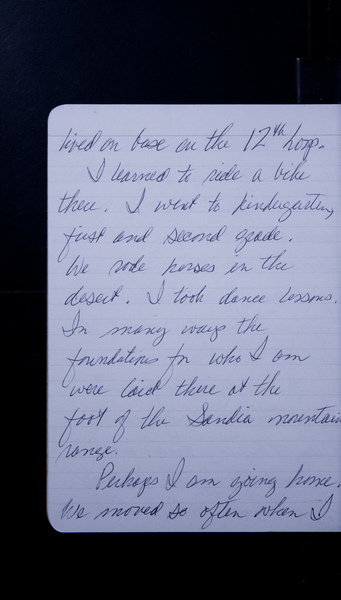 lived on base on the 12th loop.
I learned to ride a bike
there. I went to kindergarten,
first and second grade.
We rode horses in the
desert. I took dance lessons.
In many ways the
foundations for who I am
were laid there at the
foot of the Sandia mountain
range.
Perhaps I am going home.
We moved so often when I